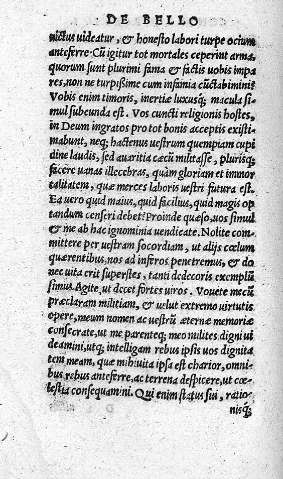 DE BELLO
uictus uideatur, & honesto labori turpe ocium
anteferre. Cũ igitur tot mortales ceperint arma,
quorum sunt plurimi fama & factis uobis impa
res, non ne turpißime cum infamia cũctabiminis
Vobis enim timoris, inertiæ luxusq; macula si-
mul subeunda est. Vos cuncti religionis hostes,
in Deum ingratos pro tot bonis acceptis existi
mabunt, neq; hactenus uestrum quempiam cupi
dine laudis, sed auaritia cæcũ militasse, plurisq;
facere uanas illecebras, quàm gloriam et immor
talitatem, quæ merces laboris uestri futura est.
Ea uero quid maius, quid facilius, quid magis op
tandum censeri debet? Proinde quæso, uos simul
& me ab hac ignominia uendicate. Nolite com-
mittere per uestram socordiam, ut alijs cœlum
quærentibus, nos ad inferos penetremus, & do
nec uita erit superstes, tanti dedecoris exemplũ
simus. Agite, ut decet fortes uiros. Vouete mecũ
præclaram militiam, & uelut extremo uirtutis
opere, meum nomen ac uestrũ æternæ memoriæ
consecrate, ut me parentẽq; meo milites digni ui
deamini, utq; intelligam rebus ipsis uos dignita
tem meam, quæ mihi uita ipsa est charior, omni-
bus rebus anteferre, ac terrena despicere, ut cœ-
lestia consequamini. Qui enim status sui, ratio-
nisq;